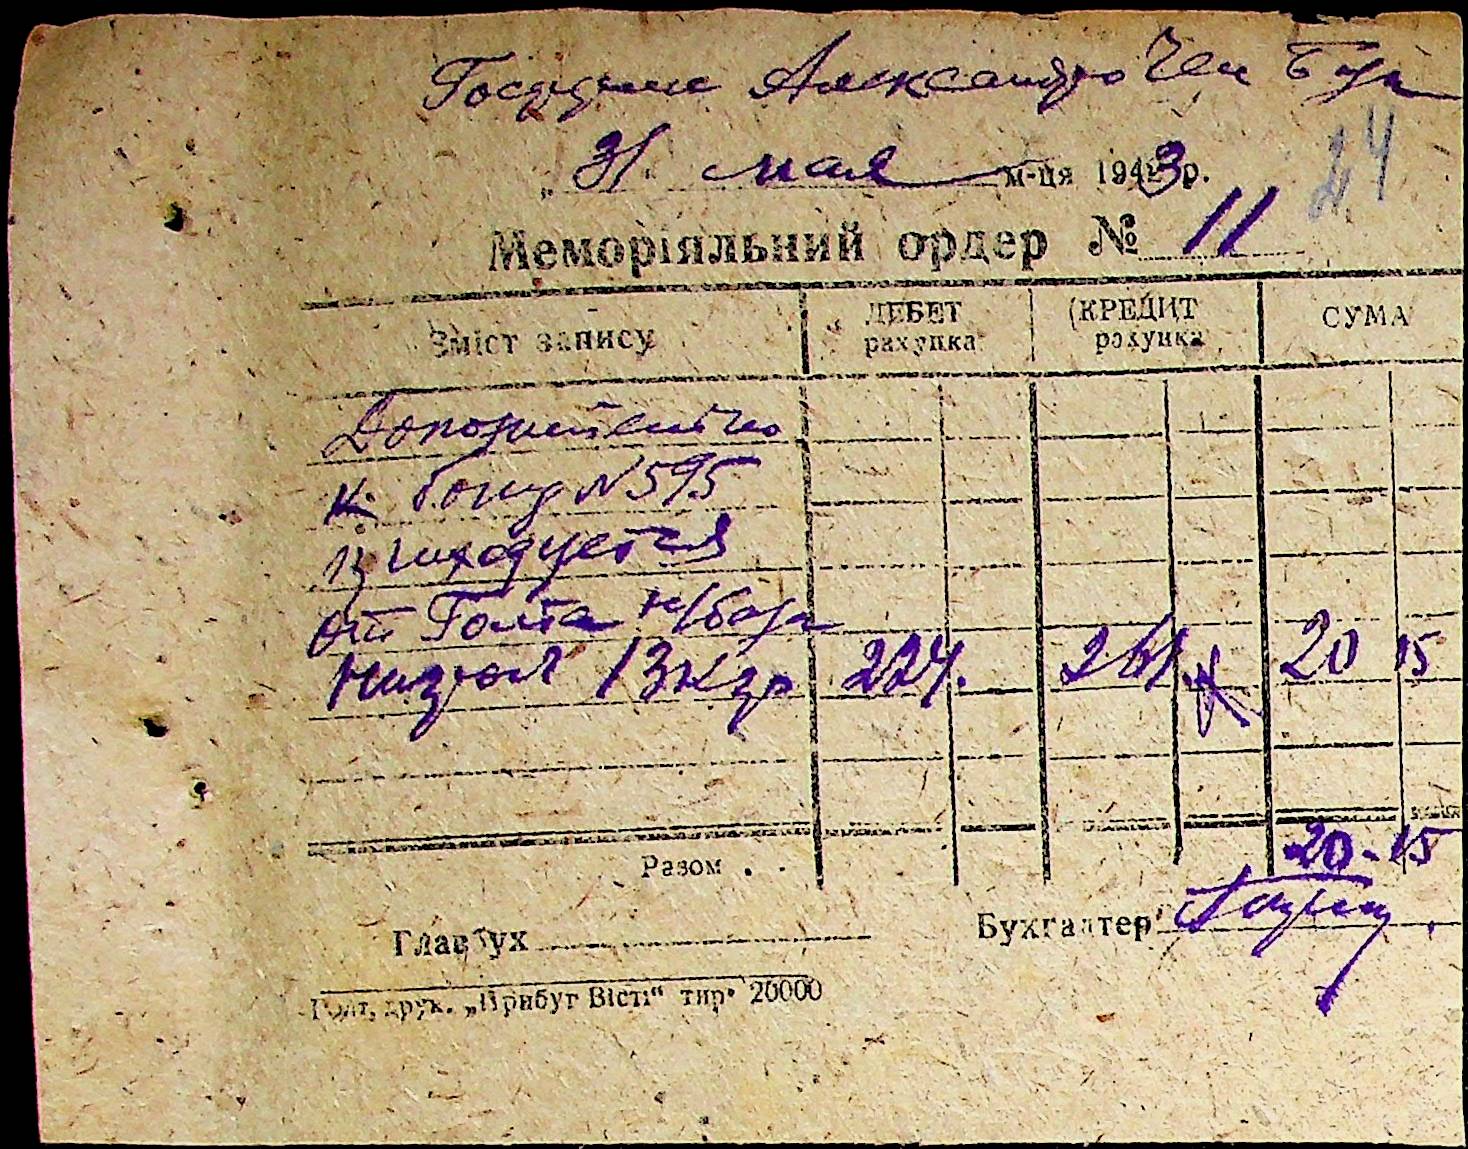 24
„31" мая м-ця 1943 р.
Меморіяльний ордер № 11
Зміст запису ДЕБЕТ рахунка КРЕДИТ рахунка СУМА
Дополнительно
к бону N 595
приходуется
от Голта
13 кгр 224. 261. 20 15
Разом . . 20-15
Главбух Бухгалтер
Голт, друк. „Прибуг Вісті" тир 20000